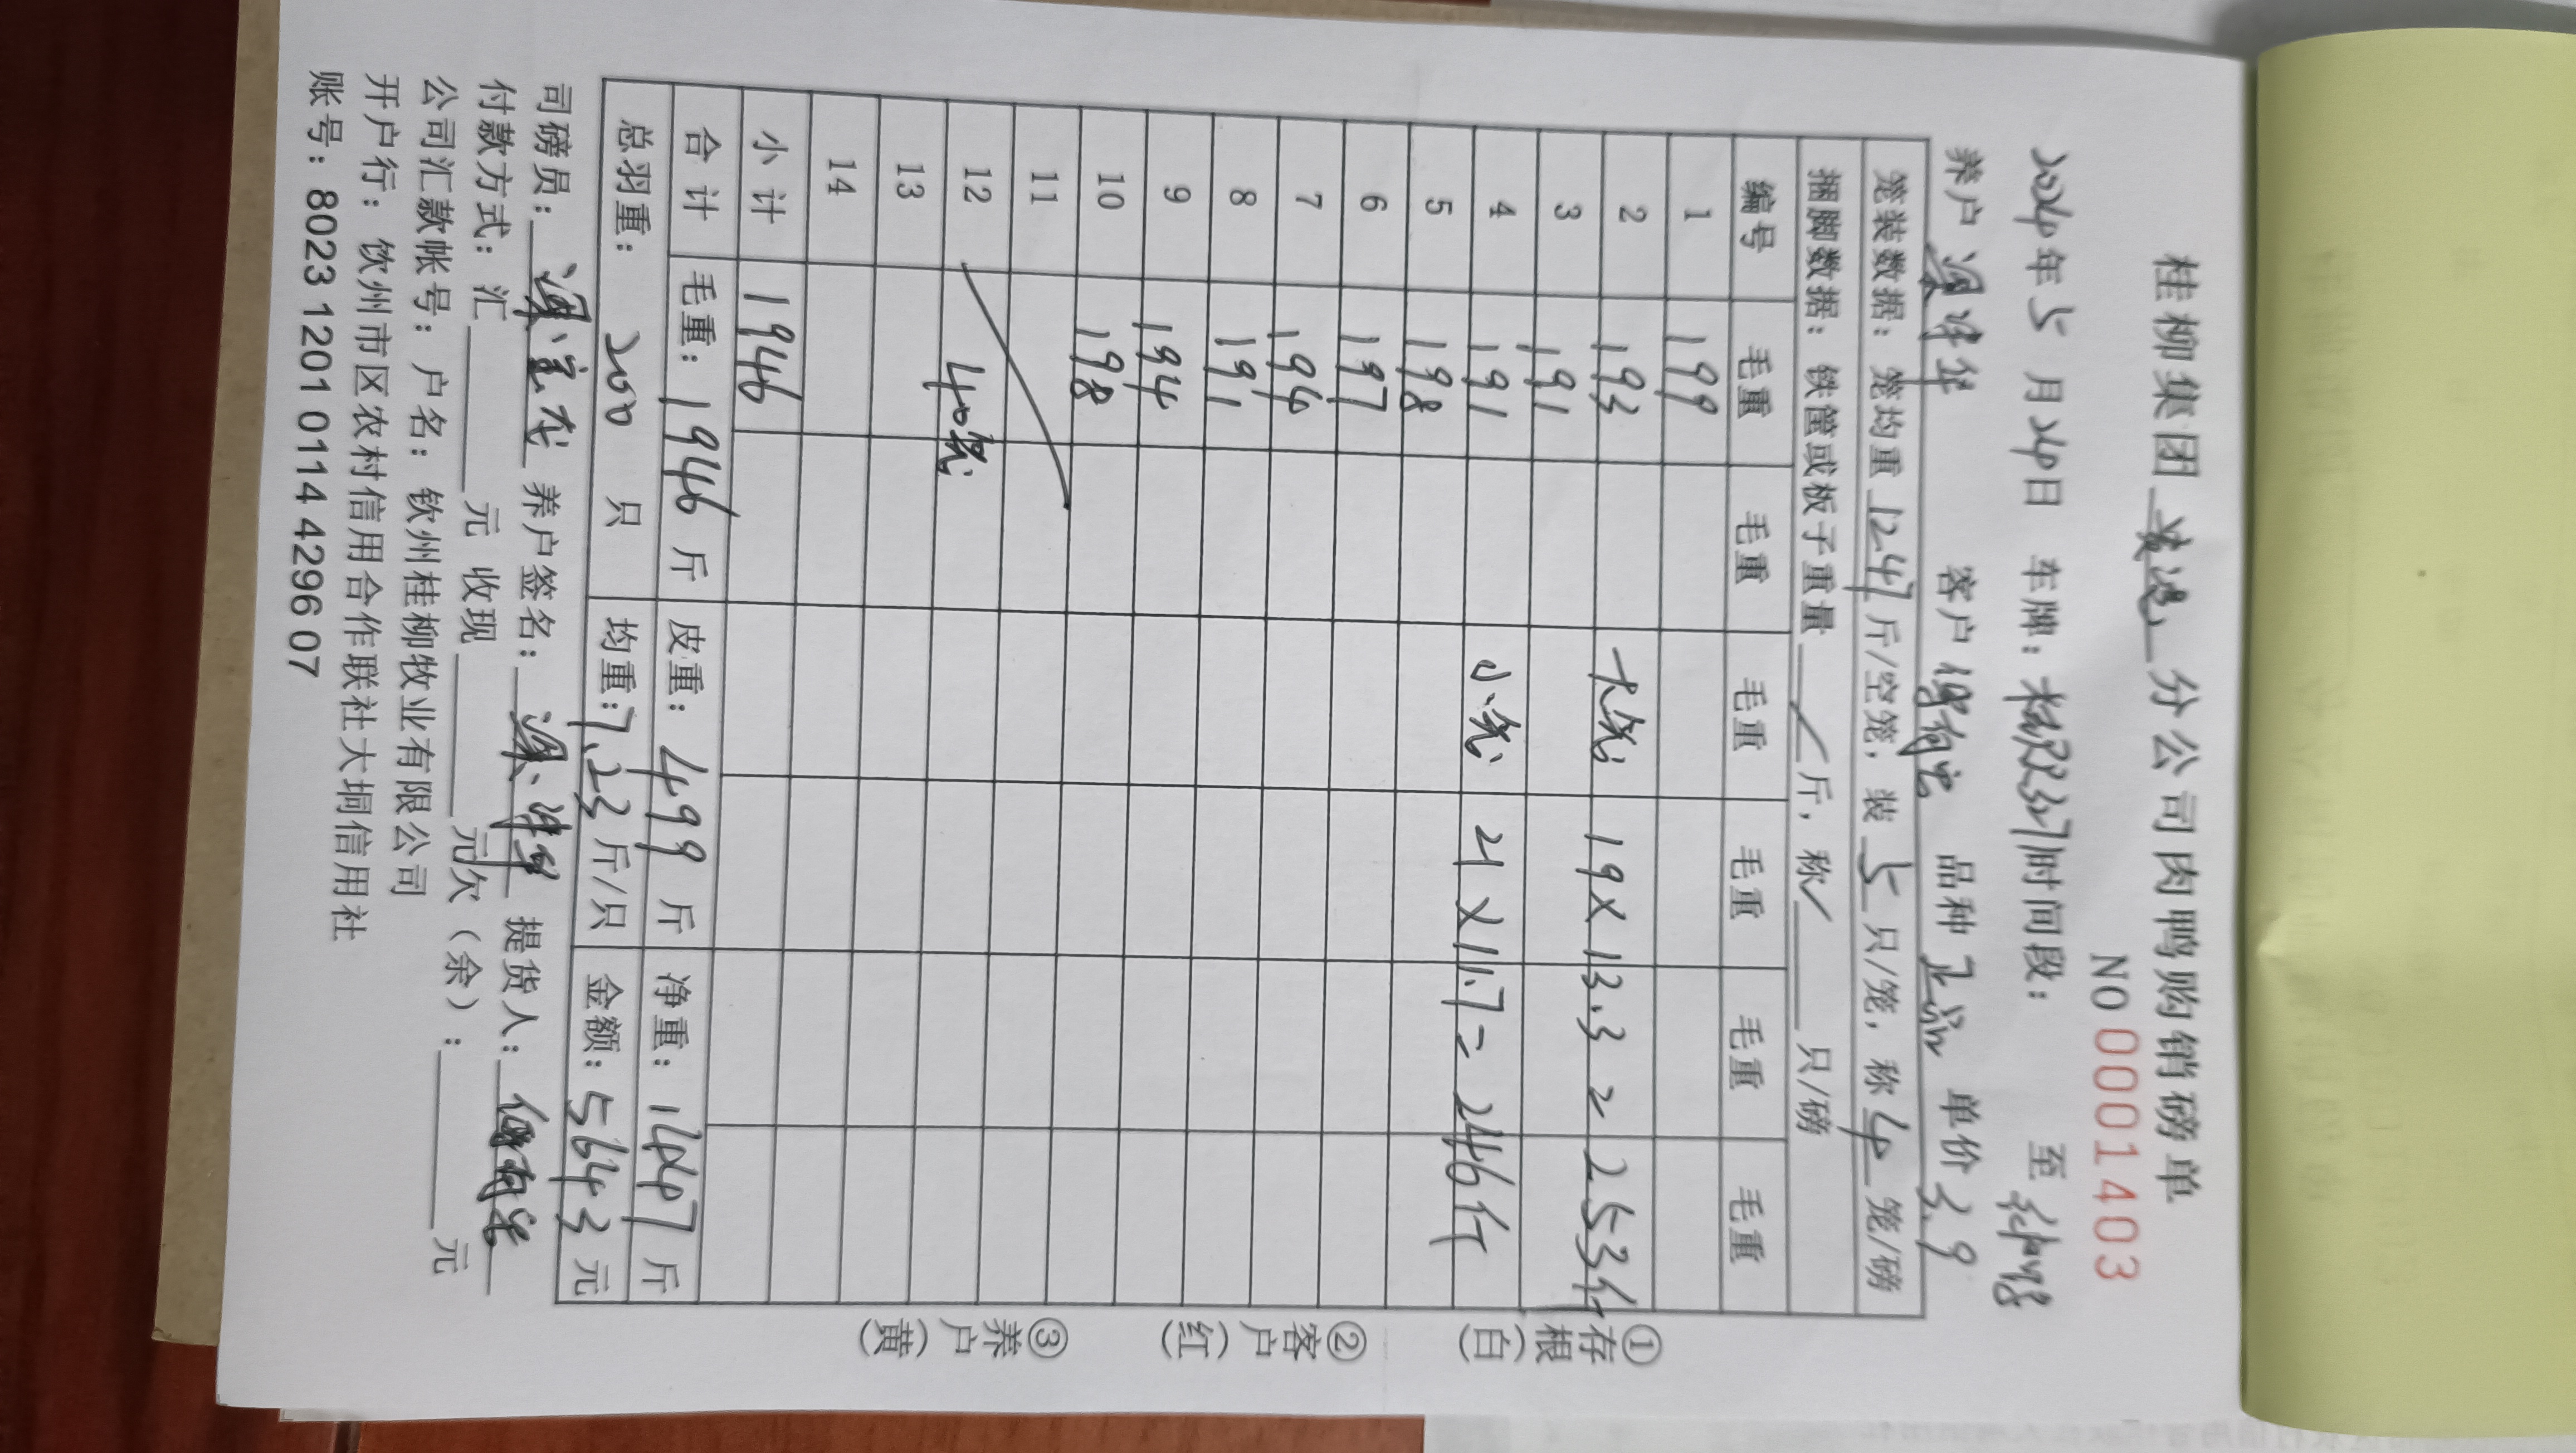 桂柳集团 分公司肉鸭购销磅单
NO 0001403
2024年5月24日 车牌: 时间段: 至
养户 梁 客户 品种 正品 单价 3.9
笼装数据: 笼均重 12.47 斤/空笼, 装 5 只/笼, 称 4 笼/磅
捆脚数据: 铁筐或板子重量 / 斤, 称 / 只/磅
编号 毛重 毛重 毛重 毛重 毛重 毛重
1 199
2 193 大笼 19×13.3=253斤
3 191
4 191 小笼 21×11.7=246斤
5 198
6 197
7 194
8 191
9 194
10 198
11
12 40笼
13
14
小计 1946
合计 毛重: 1946 斤 皮重: 499 斤 净重: 1447 斤
总羽重: 200 只 均重: 7.23 斤/只 金额: 5643 元
司磅员: 养户签名: 梁 提货人:
付款方式: 汇 元 收现 元欠(余): 元
公司汇款帐号: 户名: 钦州桂柳牧业有限公司
开户行: 饮州市区农村信用合作联社大垌信用社
账号: 8023 1201 0114 4296 07
①存根(白) ②客户(红) ③养户(黄)